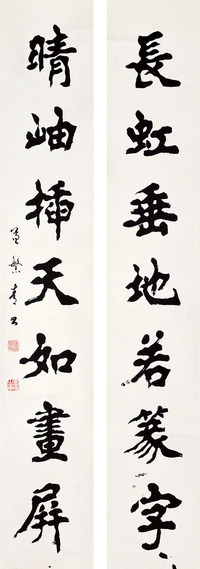 長虹垂地若篆字
晴岫插天如畫屏